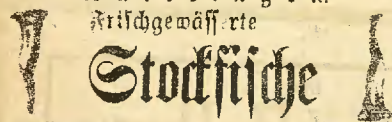 Frischgewässerte
Stockfische